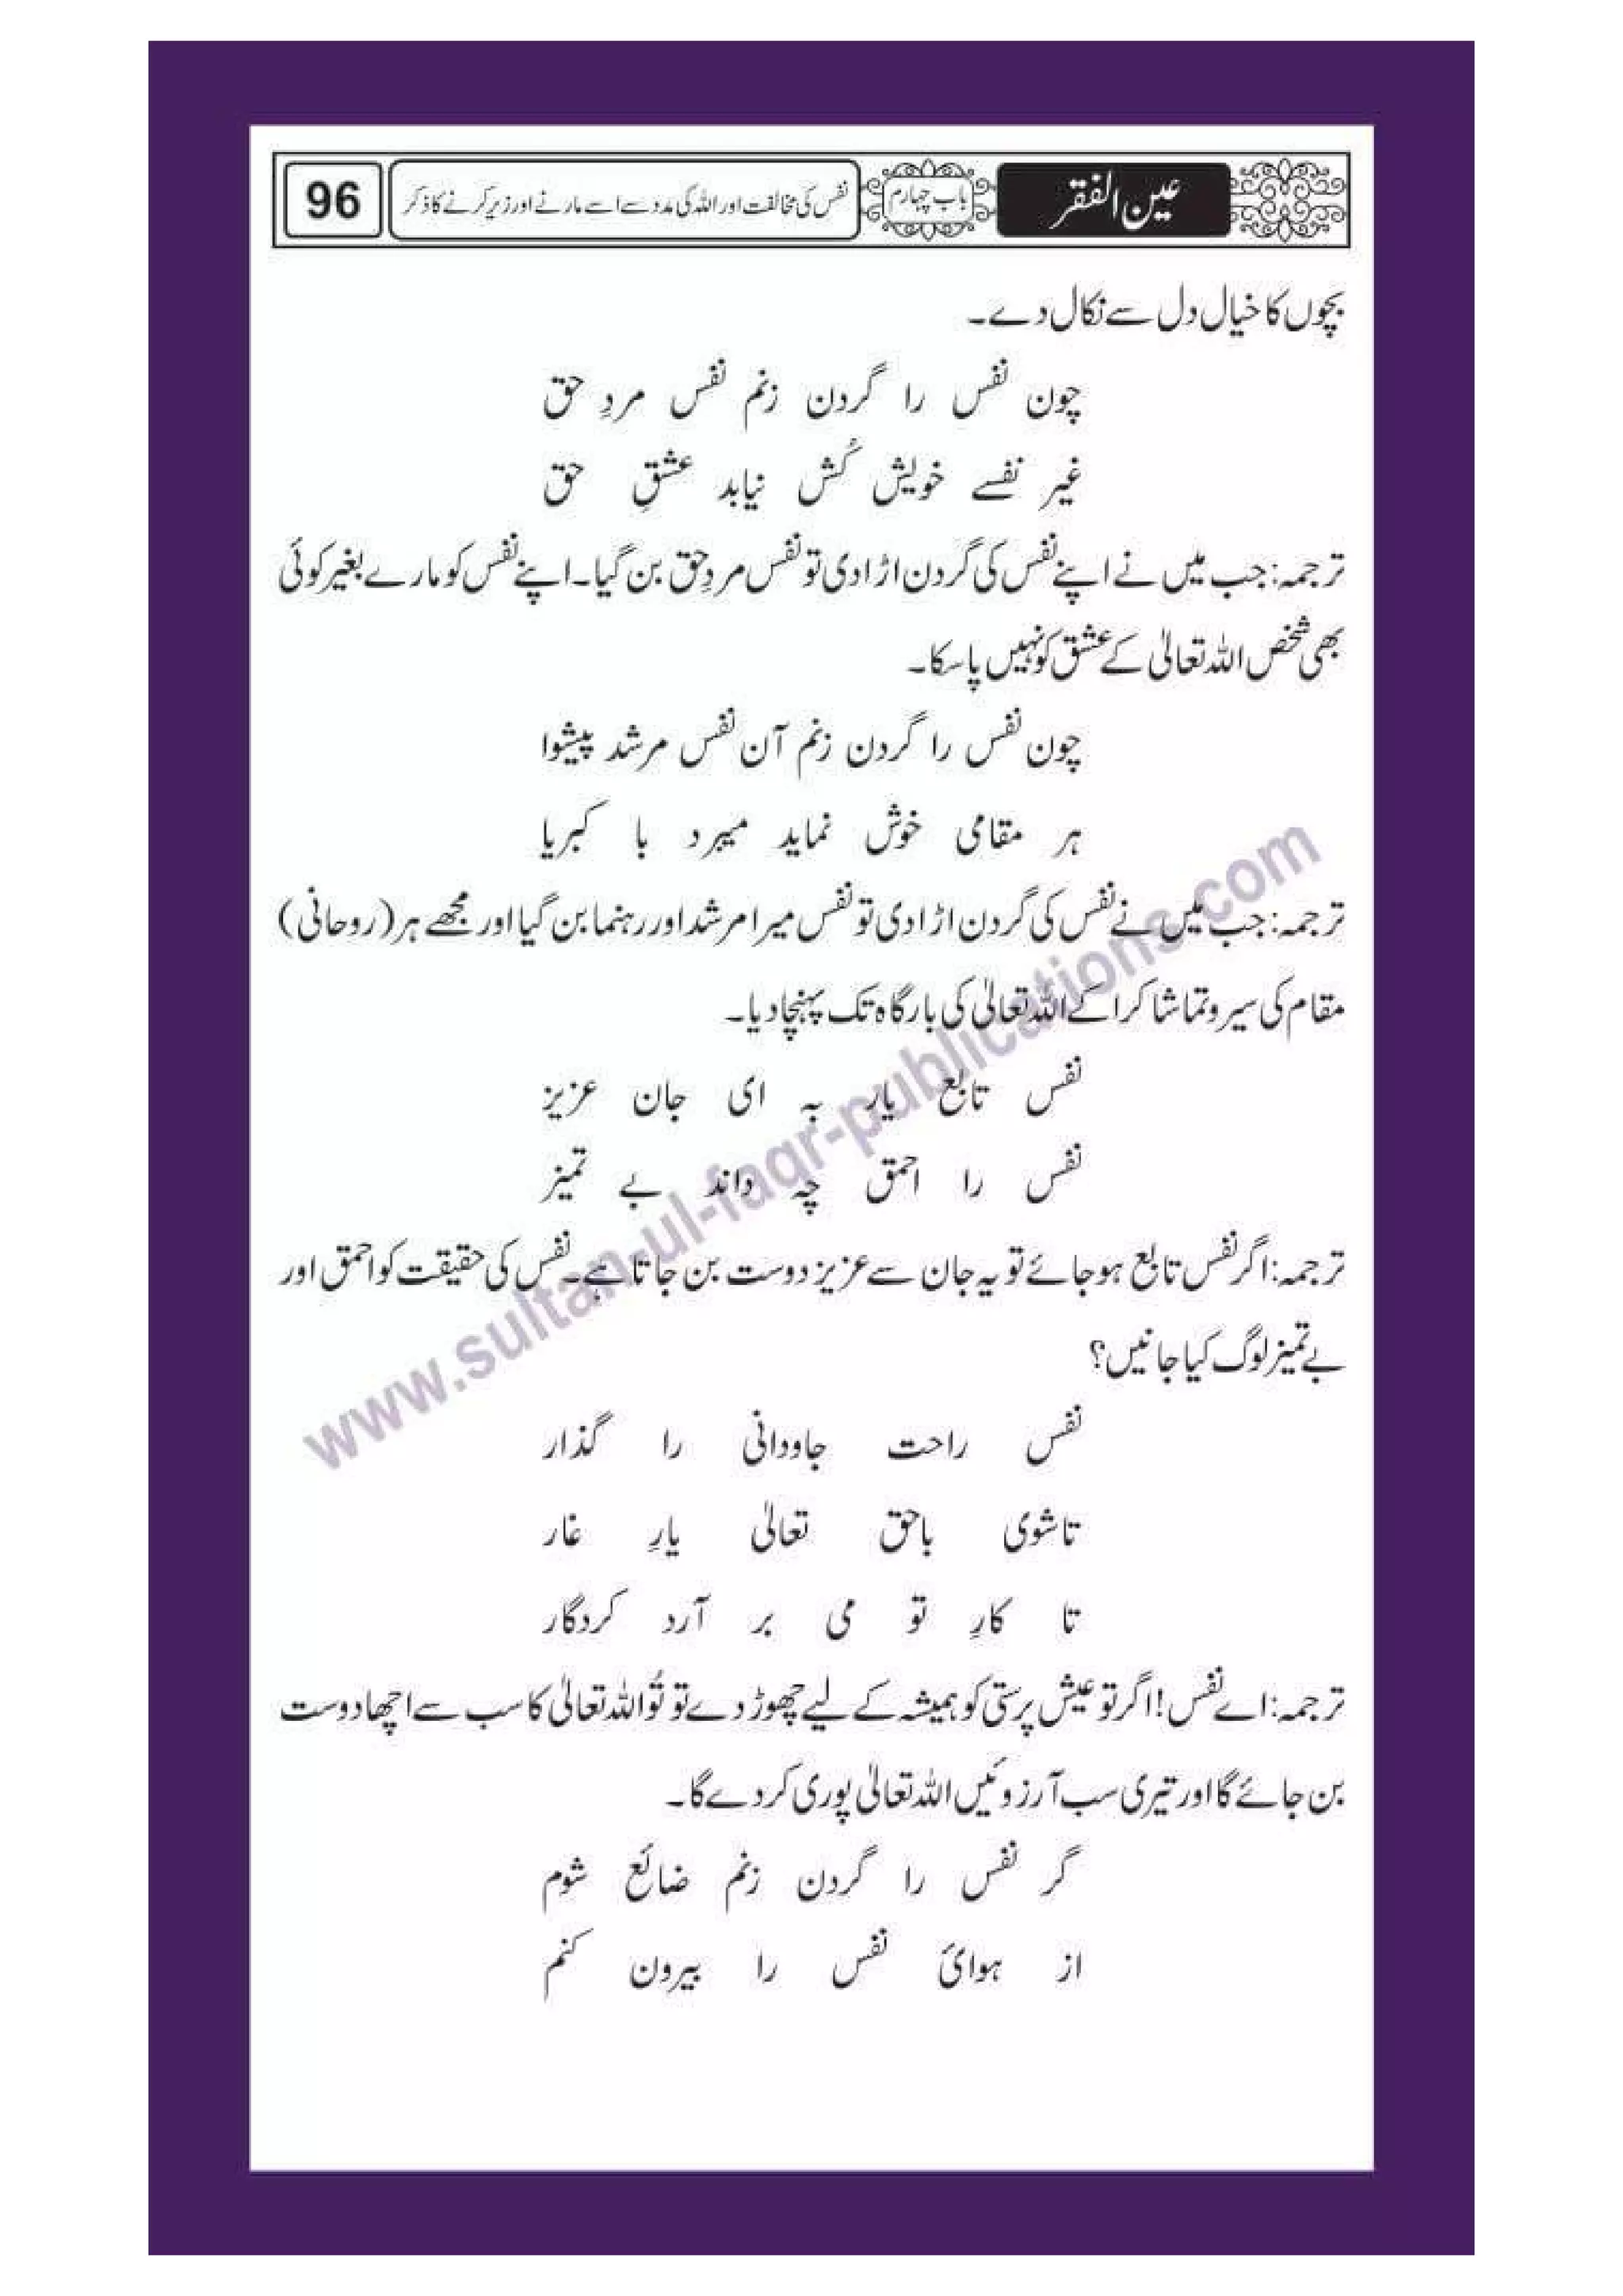 عین الفقر
باب چہارم
نفس کی مخالفت اور اللہ کی مدد سے اسے مارنے اور زیر کرنے کا ذکر
96
بچوں کا خیال دل سے نکال دے۔
چون نفس را گردن زنم نفس مردِ حق
غیر نفسے خویش کُش نیابد عشقِ حق
ترجمہ: جب میں نے اپنے نفس کی گردن اڑا دی تو نفس مردِ حق بن گیا۔ اپنے نفس کو مارے بغیر کوئی
بھی شخص اللہ تعالیٰ کے عشق کو نہیں پا سکا۔
چون نفس را گردن زنم آن نفس مرشد پیشوا
ہر مقامی خوش نماید میبرد با کبریا
ترجمہ: جب میں نے نفس کی گردن اڑا دی تو نفس میرا مرشد اور رہنما بن گیا اور مجھے ہر (روحانی)
مقام کی سیر و تماشا کرا کے اللہ تعالیٰ کی بارگاہ تک پہنچا دیا۔
نفس تابع یار بہ ای جان عزیز
نفس را احمق چہ داند بے تمیز
ترجمہ: اگر نفس تابع ہو جائے تو یہ جان سے عزیز دوست بن جاتا ہے۔ نفس کی حقیقت کو احمق اور
بے تمیز لوگ کیا جانیں؟
نفس راحت جاودانی را گذار
تاشوی باحق تعالیٰ یارِ غار
تا کارِ تو می بر آرد کردگار
ترجمہ: اے نفس! اگر تو عیش پرستی کو ہمیشہ کے لیے چھوڑ دے تو تُو اللہ تعالیٰ کا سب سے اچھا دوست
بن جائے گا اور تیری سب آرزوئیں اللہ تعالیٰ پوری کر دے گا۔
گر نفس را گردن زنم ضائع شوم
از ہوائ نفس را بیرون کنم
www.sultan-ul-faqr-publications.com